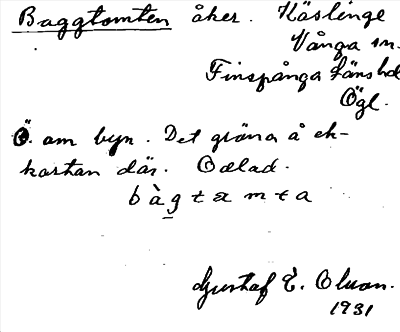 Baggtomten åker. Häslinge
Vånga sn.
Finspånga länshd
Ögl.
Ö. om byn. Det gräns å ek-
kartan där. Odlad.
bàgtamta
Gustaf E. Olson.
1931